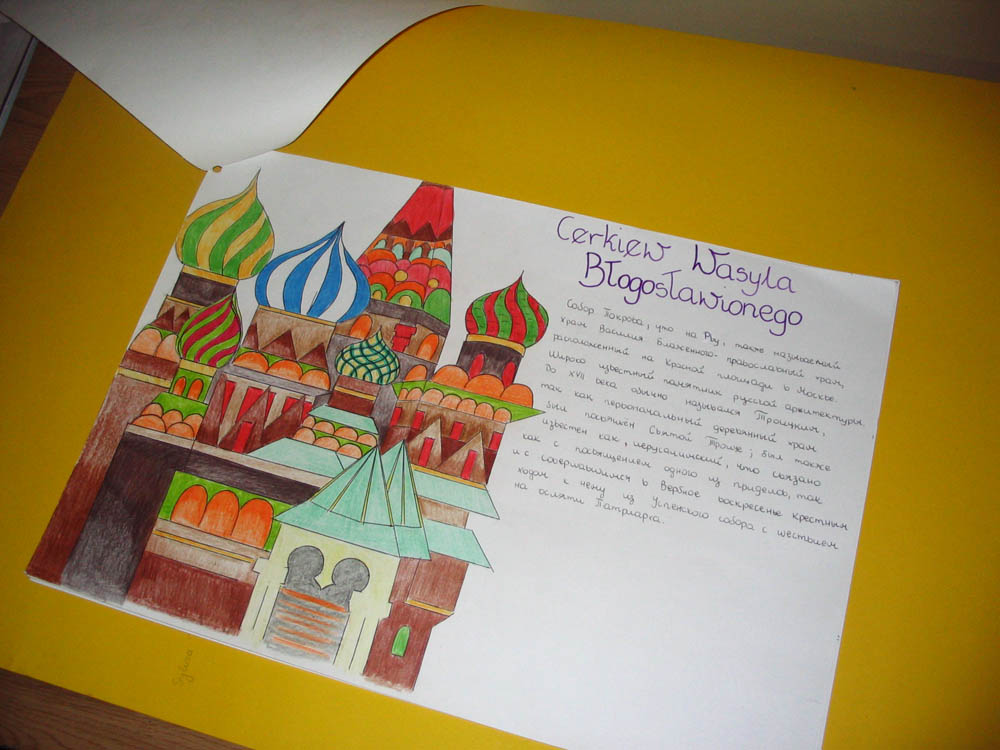 Cerkiew Wasyla
Błogosławionego
Собор Покрова, что на Рву, также называемый
храм Василия Блаженного- православный храм,
расположенный на Красной площади в Москве.
Широко известный памятник русской архитектуры.
До XVII века обычно назывался Троицким,
так как первоначальный деревянный храм
был посвящён Святой Троице; был также
известен как „иерусалимский", что связано
как с посвящением одного из приделов, так
и с совершавшимся в Вербное воскресенье крестным
ходом к нему из Успенского собора с шествием
на осляти Патриарха.